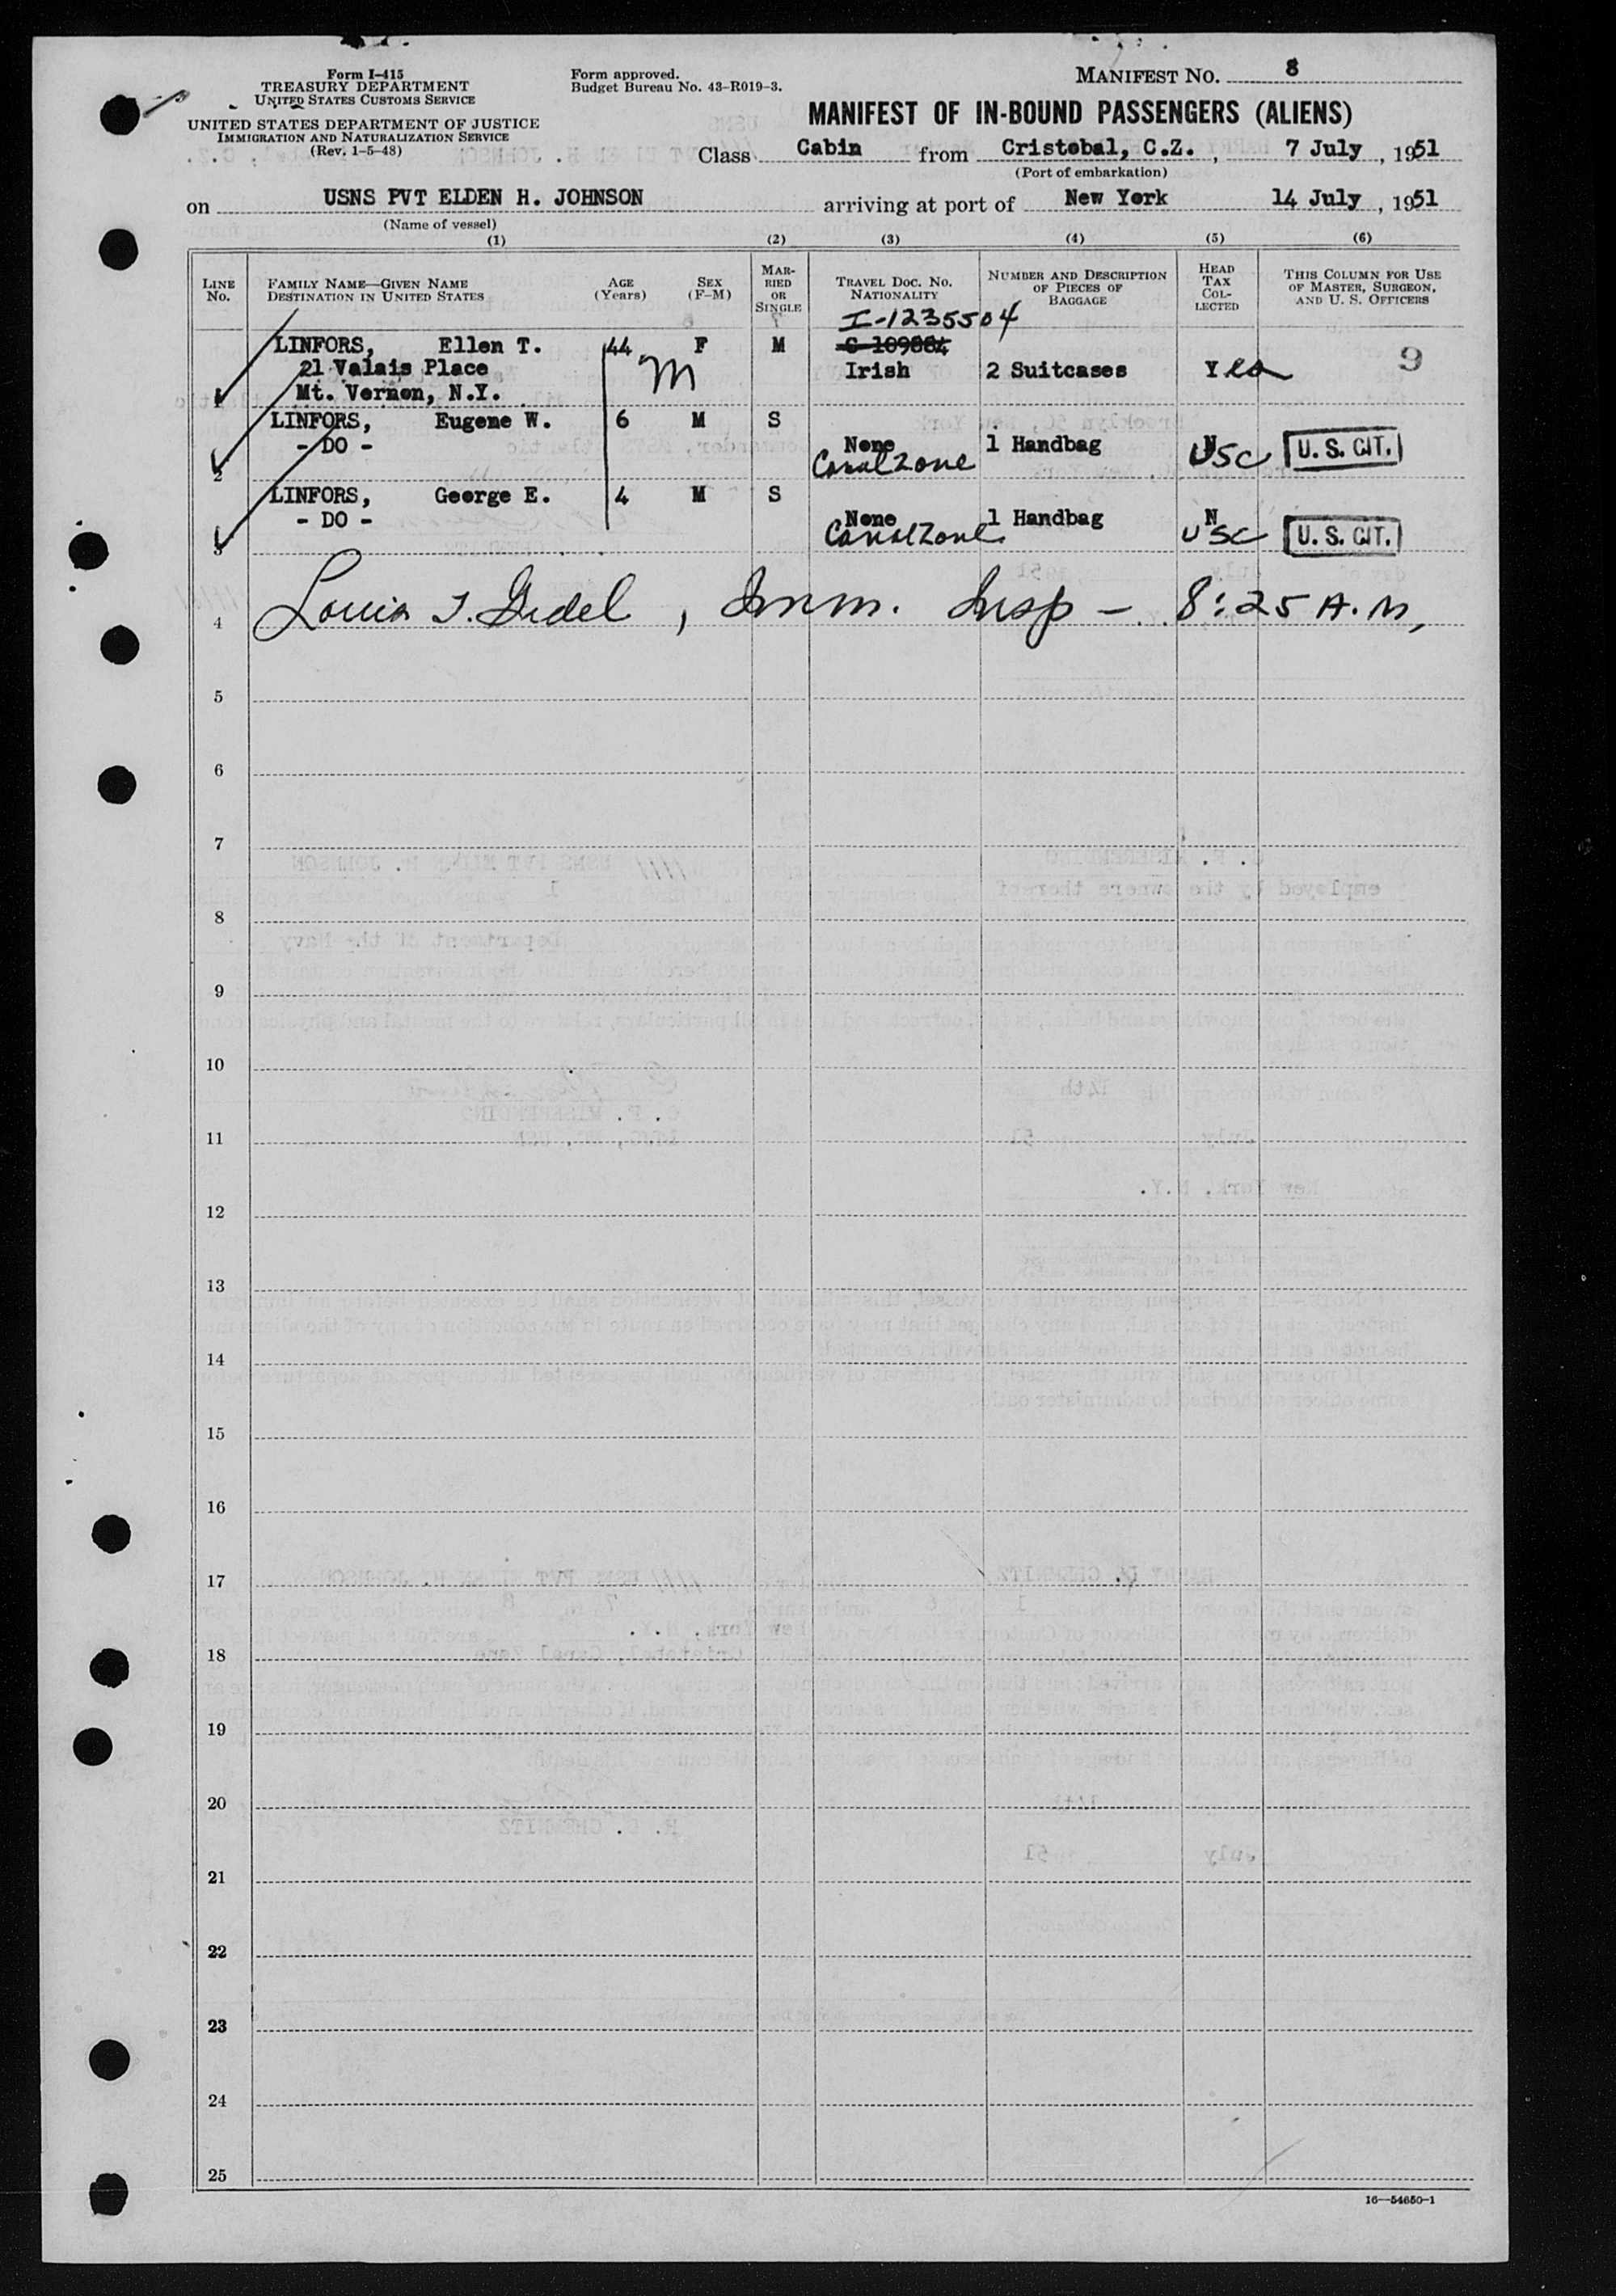 Form I-415
TREASURY DEPARTMENT
UNITED STATES CUSTOMS SERVICE
UNITED STATES DEPARTMENT OF JUSTICE
IMMIGRATION AND NATURALIZATION SERVICE
(Rev. 1-5-48)
Form approved.
Budget Bureau No. 43-R019-3.
MANIFEST NO. 8
MANIFEST OF IN-BOUND PASSENGERS (ALIENS)
Class Cabin from Cristobal, C.Z., 7 July, 1951
(Port of embarkation)
on USNS PVT ELDEN H. JOHNSON arriving at port of New York 14 July, 1951
(Name of vessel)
(1) (2) (3) (4) (5) (6)
LINE NO.
FAMILY NAME—GIVEN NAME
DESTINATION IN UNITED STATES
AGE (Years)
SEX (F-M)
MARRIED OR SINGLE
TRAVEL DOC. NO. NATIONALITY
NUMBER AND DESCRIPTION OF PIECES OF BAGGAGE
HEAD TAX COLLECTED
THIS COLUMN FOR USE OF MASTER, SURGEON, AND U. S. OFFICERS
I-1235504
LINFORS, Ellen T. 44 F M C-109884
21 Valais Place M Irish 2 Suitcases Yes 9
1 Mt. Vernon, N.Y.
LINFORS, Eugene W. 6 M S
- DO - None 1 Handbag N U. S. CIT.
2 Canal Zone USC
LINFORS, George E. 4 M S
- DO - None 1 Handbag N
3 Canal Zone USC U. S. CIT.
4 Louis T. Gidel, Imm. Insp - 8:25 A.M,
5
6
7
8
9
10
11
12
13
14
15
16
17
18
19
20
21
22
23
24
25
16—54650-1